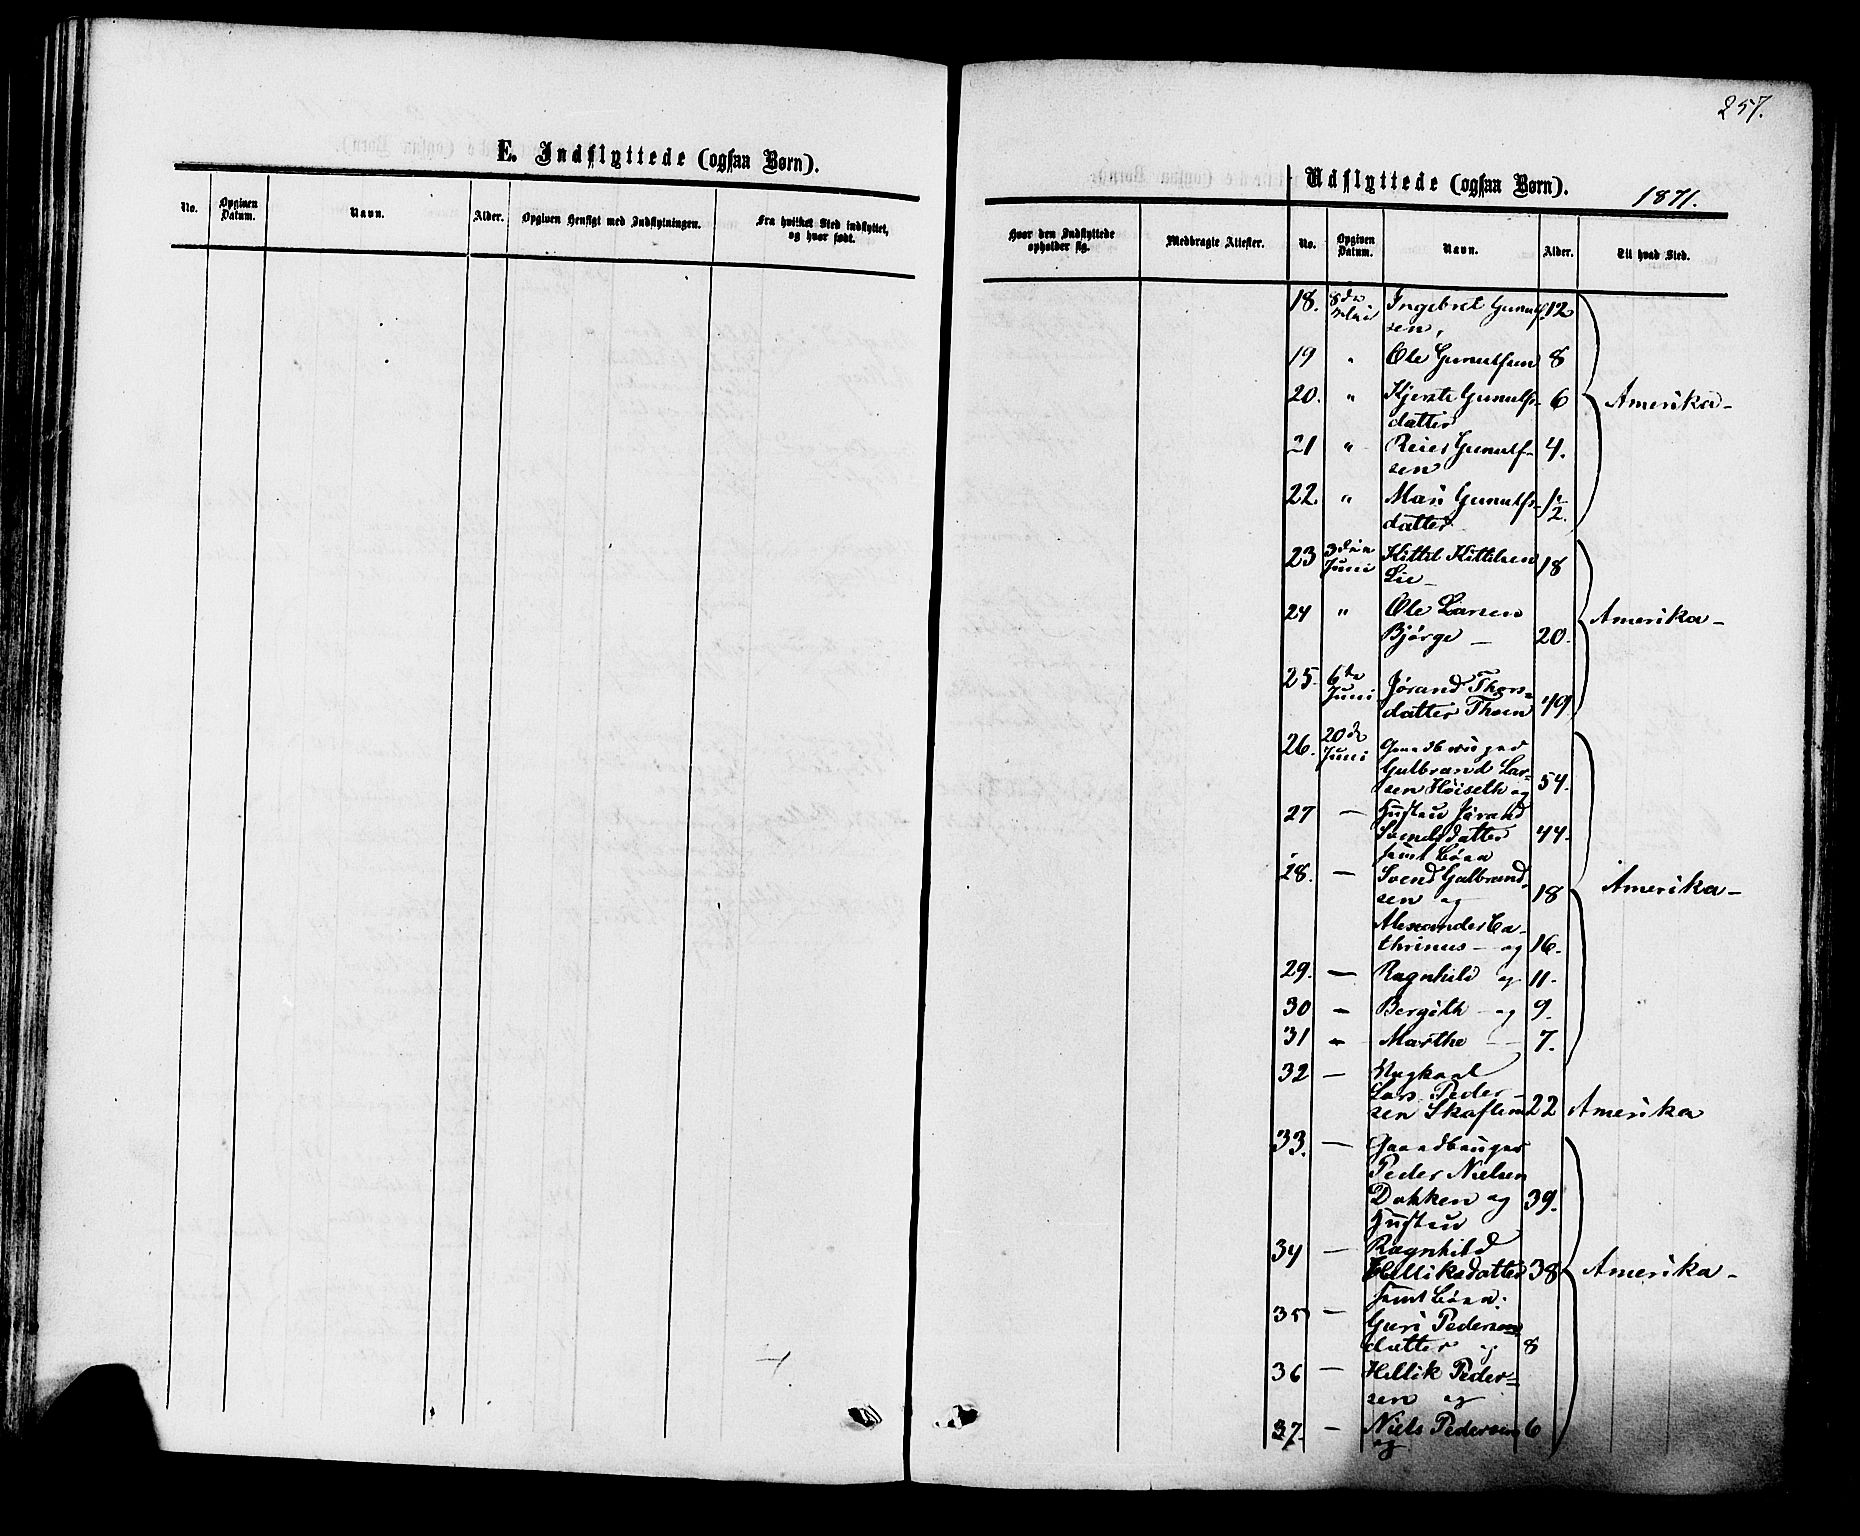 257.
E. Indflyttede (ogsaa Børn).
No.
Opgiven Datum.
Navn.
Alder.
Opgiven Hensigt med Indflytningen.
Fra hvilket Sted indflyttet, og hvor født.
Udflyttede (ogsaa Børn).
1871.
Hvor den Indflyttede opholder sig.
Medbragte Attester.
No.
Opgiven Datum.
Navn.
Alder.
Til hvad Sted.
18. 8de Mai Ingebret Gunulf- 12
sen,
19 " Ole Gunulfsen 8
20. " Kjersti Gunulfs- 6 Amerika-
datter
21 " Reier Gunulf- 4.
sen
22. " Mari Gunulfs- 1/2.
datter
23 3die Juni Kittel Kittelsen 18
Lie -
24 " Ole Larsen
Bjørge - 20. Amerika -
25. 6te Juni Jørand Thors-
datter Thoen 49
26. 20de Juni Gaardbruger
Gulbrand Lar- 54.
sen Høiseth og
27 - Hustru Jørand
Svendsdatter 44.
samt Børn
28. - Svend Gulbrand-
sen og 18 Amerika -
Alexander Ca-
thrinus - og 16.
29. - Ragnhild og 11.
30 - Bergith - og 9.
31 " Marthe - 7.
32 - Ungkarl
Lars Peder-
sen Skaftem 22 Amerika
33. - Gaardbruger
Peder Nielsen
Dokken og 39.
Hustru
34 - Ragnhild
Helliksdatter 38 Amerika -
samt Børn:
35 - Guri Peders-
datter og 8
36 - Hellik Peder=
sen og
37. - Niels Pedersen 6
og